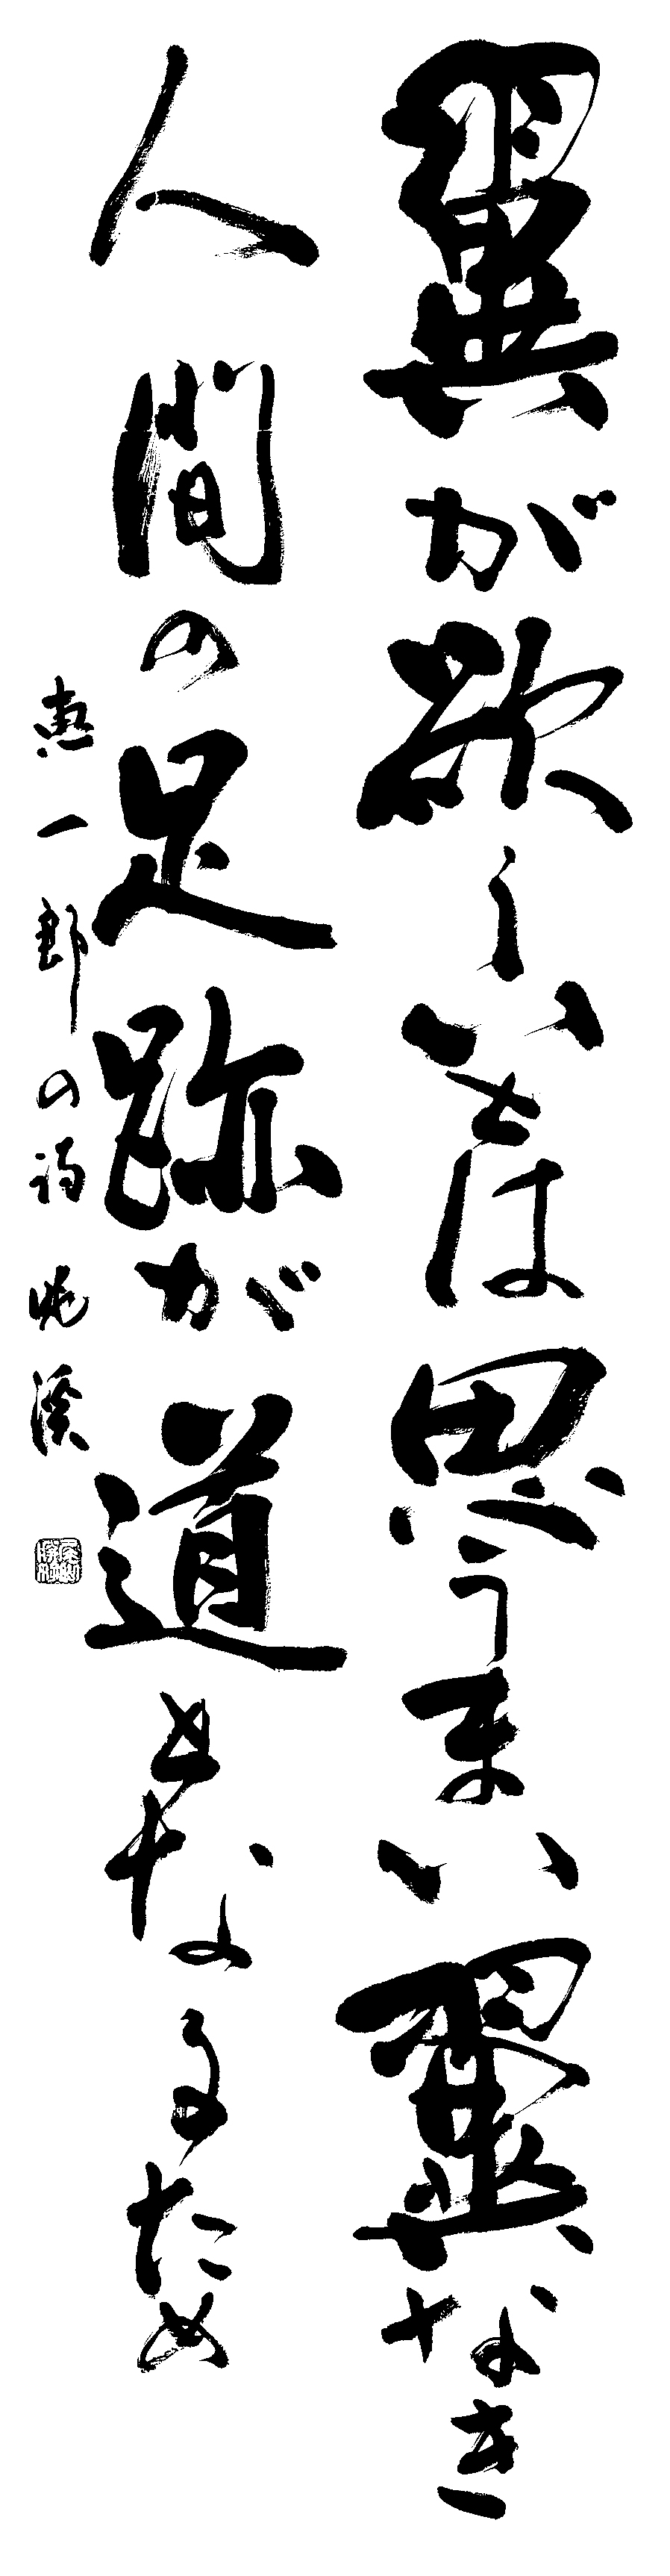 翼が欲しいとは思うまい翼なき
人間の足跡が道となるため
恵一郎の詩